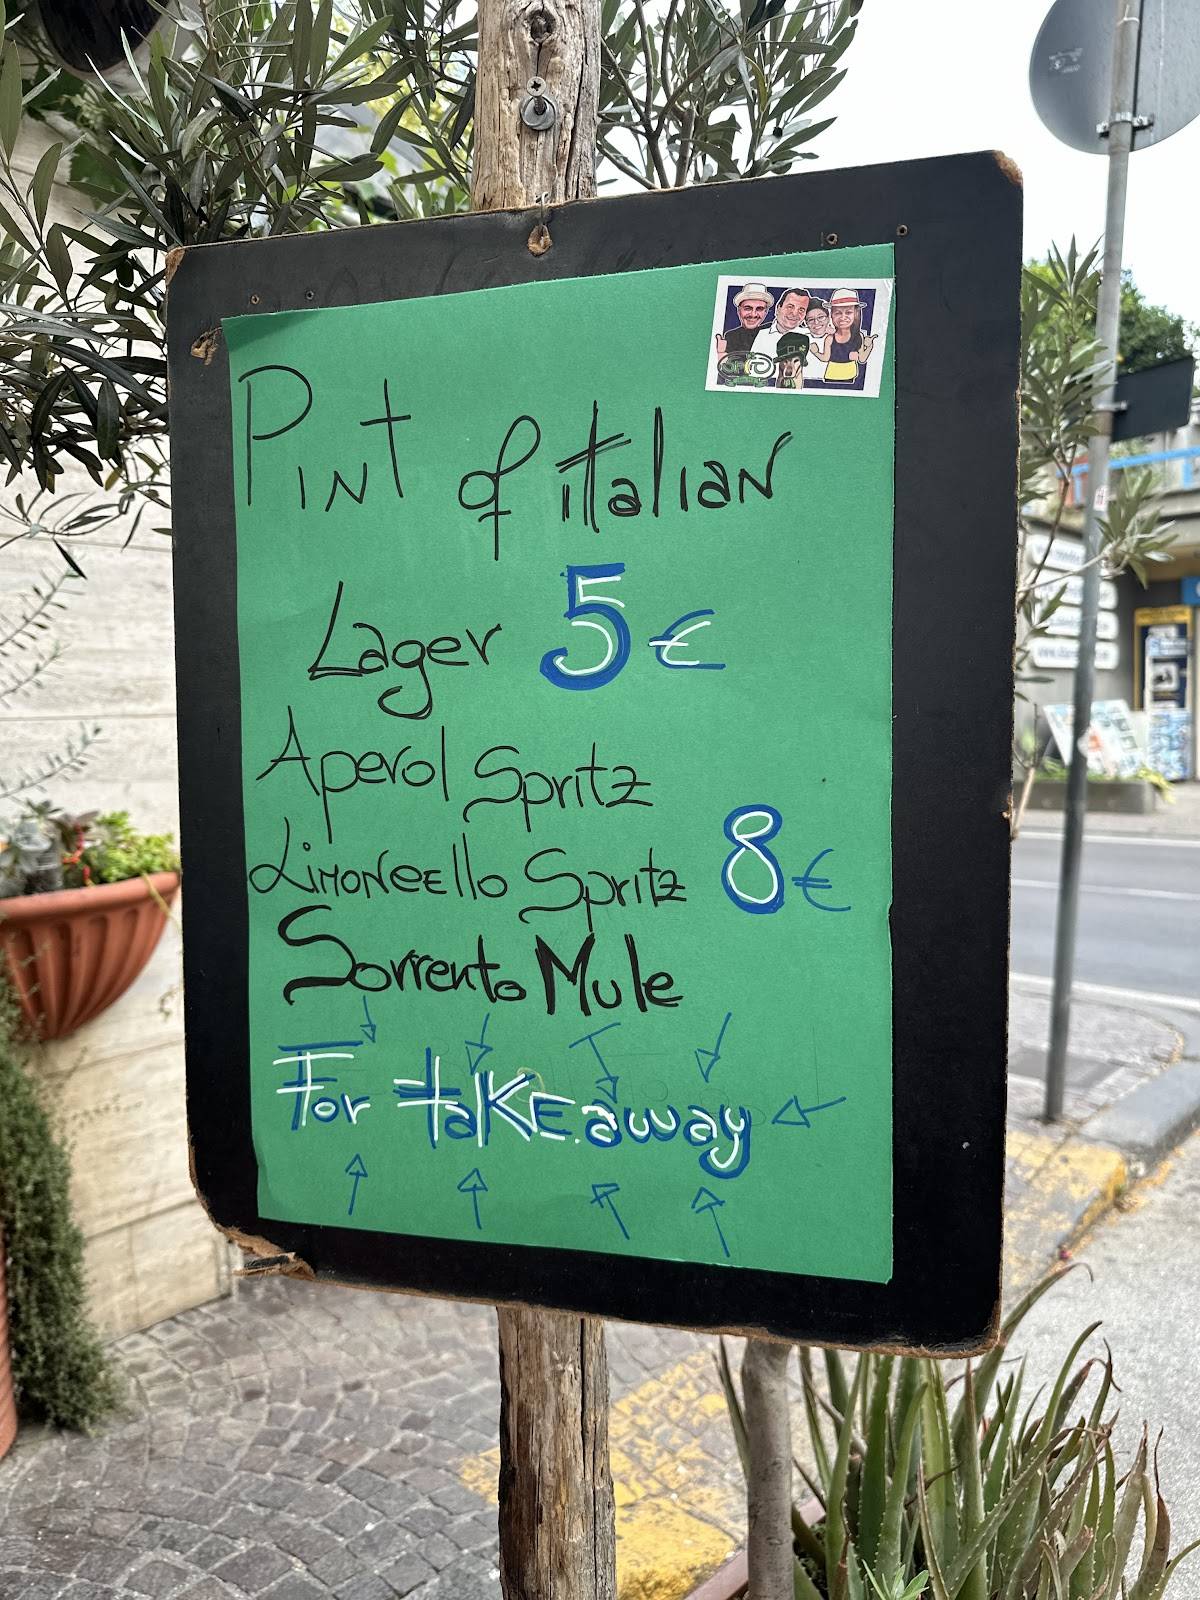 Pint of italian
Lager 5€
Aperol Spritz
Limoncello Spritz 8€
Sorrento Mule
For take away